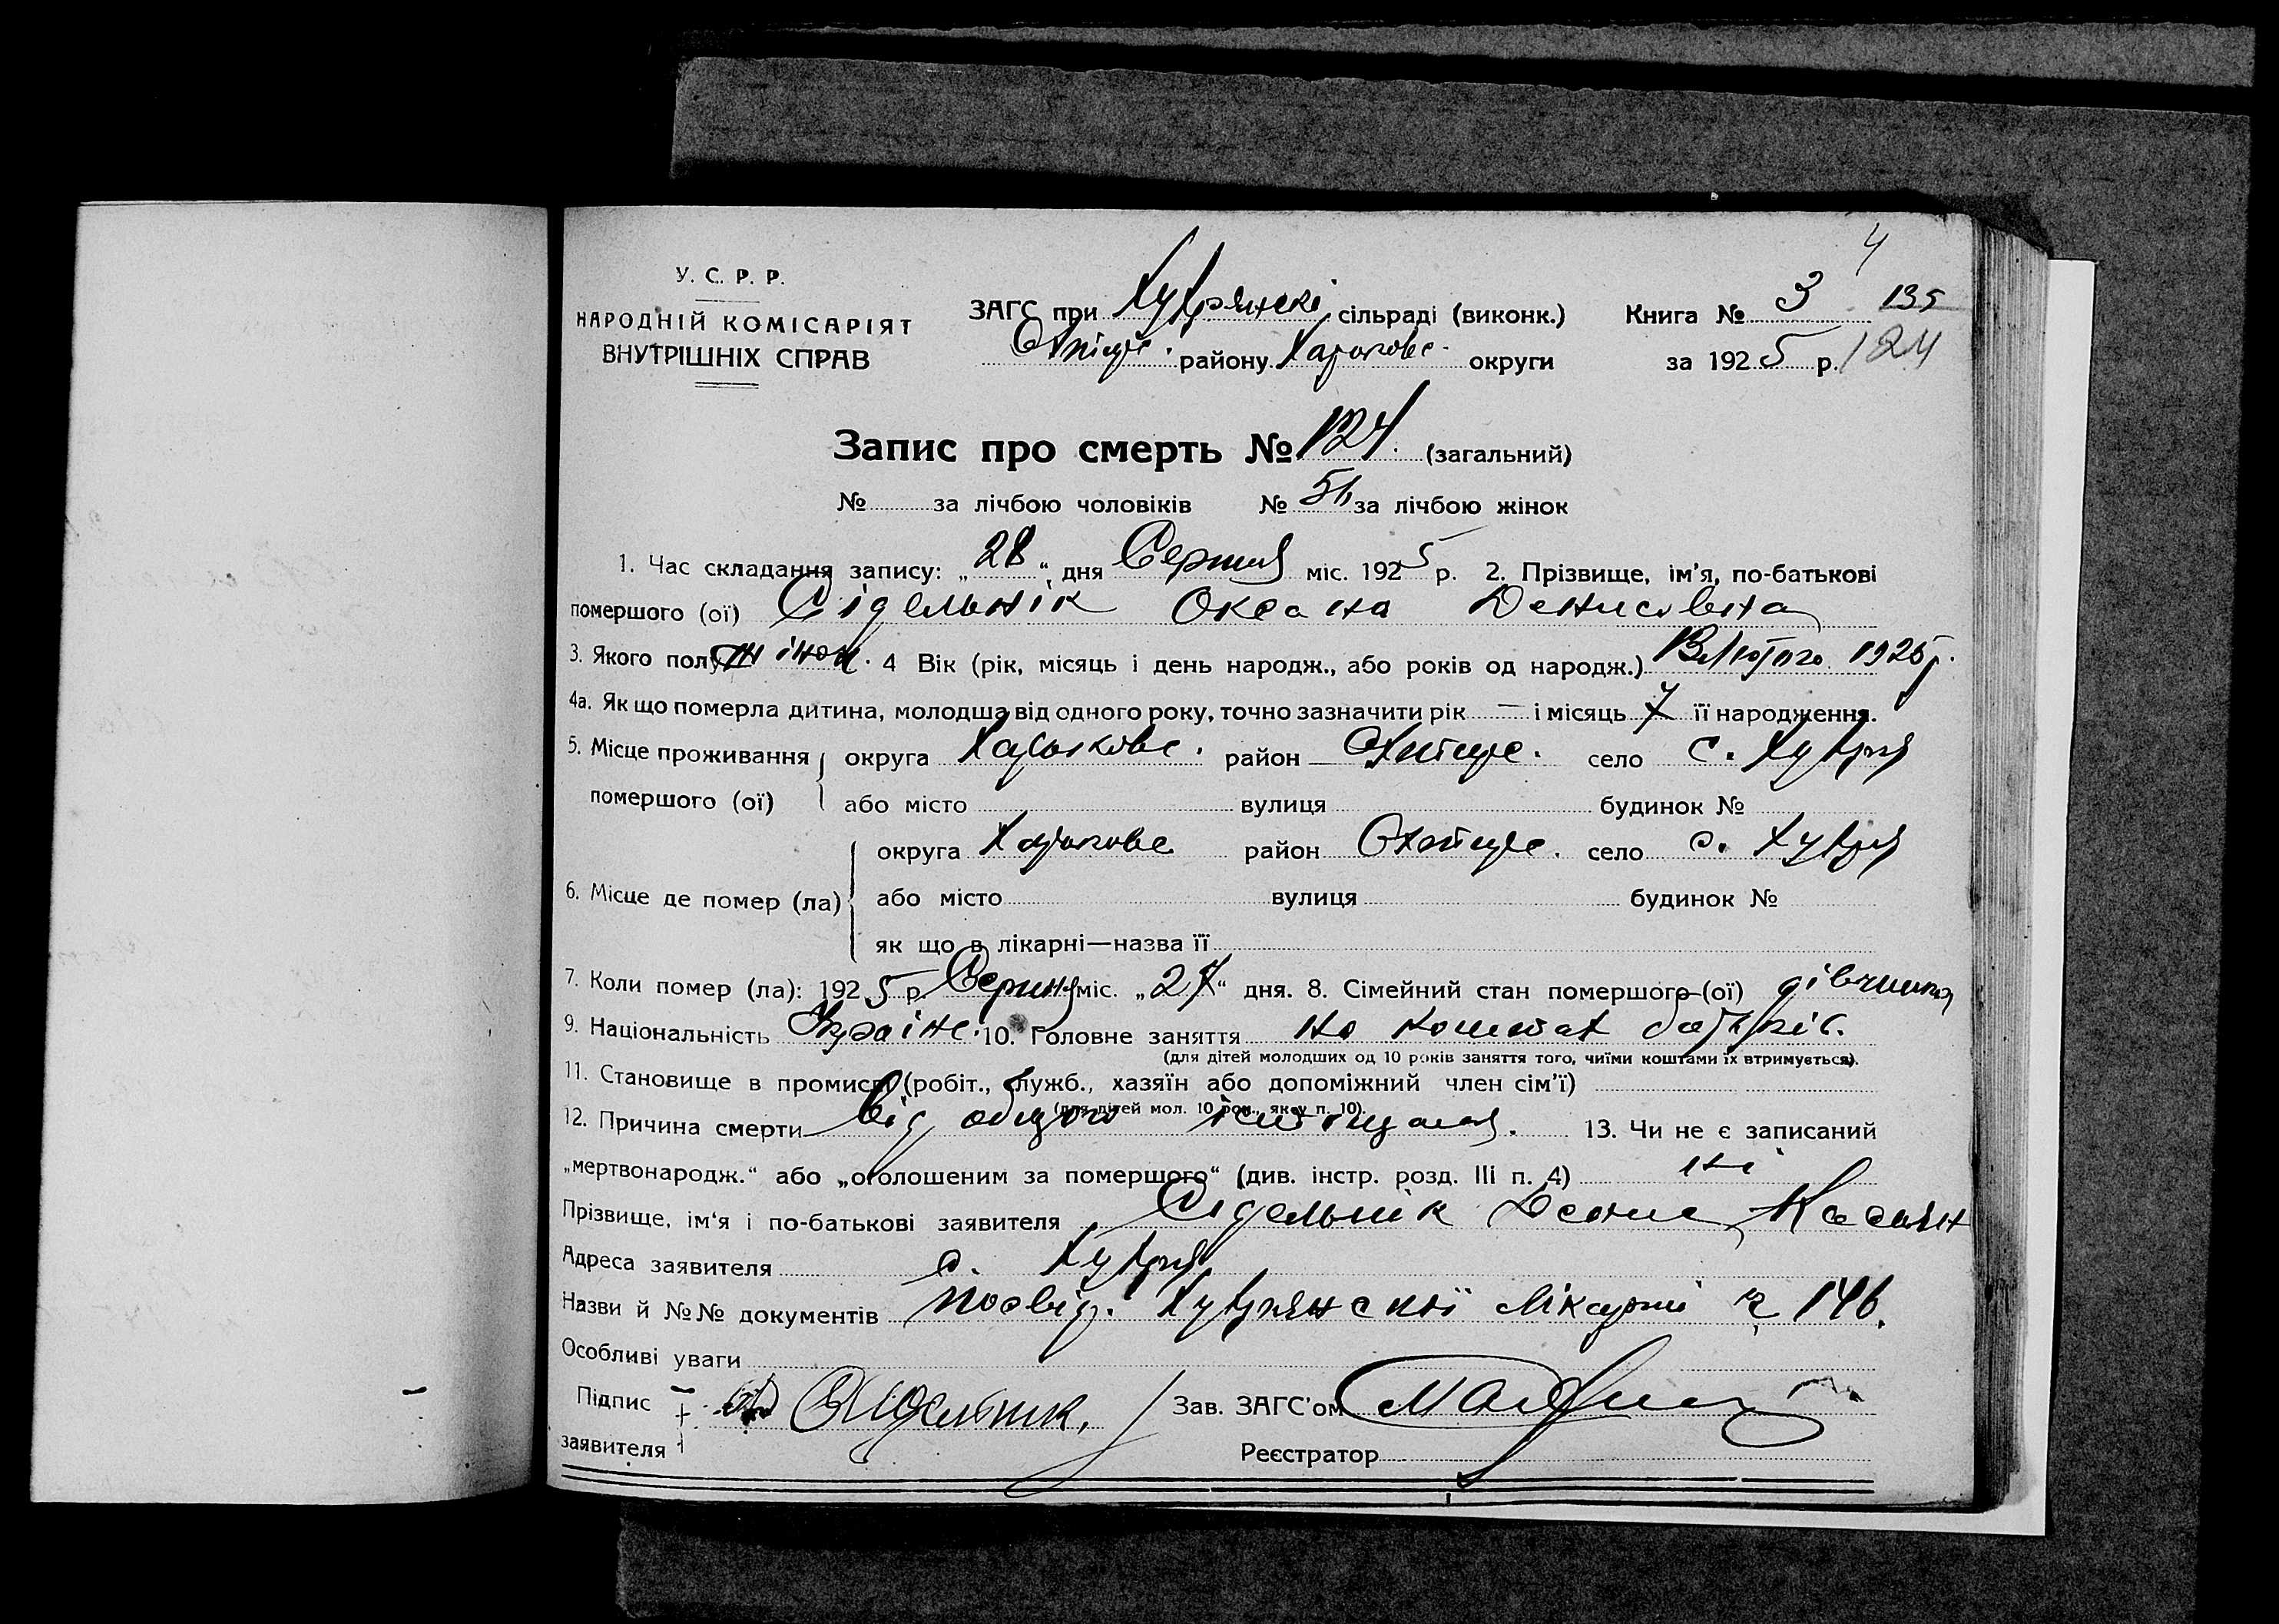 4
У. С. Р. Р.
НАРОДНІЙ КОМІСАРІЯТ
ВНУТРІШНІХ СПРАВ
ЗАГС при Хухрянскі сільраді (виконк.) Книга № 3 135
району Харьковс. округи за 1925 р. 124
Запис про смерть № 124. (загальний)
№ за лічбою чоловіків № за лічбою жінок
1. Час складання запису: „28“ дня Серпня міс. 1925 р. 2. Прізвище, ім'я, по-батькові
помершого (ої) Сідельнік Оксана Денисовна
3. Якого полу жіноч. 4 Вік (рік, місяць і день народж., або років од народж.) Лютого 1925 р.
4а. Як що померла дитина, молодша від одного року, точно зазначити рік — і місяць 7 її народження.
5. Місце проживання округа Харьковс. район Охтирс. село с. Хухря
помершого (ої) або місто вулиця будинок №
округа Харьковс район Охтирс. село с. Хухря
6. Місце де помер (ла) або місто вулиця будинок №
як що в лікарні—назва її
7. Коли помер (ла): 1925 р. Серпня міс. „27“ дня. 8. Сімейний стан помершого (ої) дівчина
9. Національність Украінс. 10. Головне заняття на коштах батьків.
(для дітей молодших од 10 років заняття того, чиїми коштами їх втримується).
11. Становище в промислі (робіт., служб., хазяїн або допоміжний член сім'ї)
(для дітей мол. 10 рок., як у п. 10).
12. Причина смерти від общого 13. Чи не є записаний
„мертвонародж.“ або „оголошеним за помершого“ (див. інстр. розд. III п. 4) ні
Прізвище, ім'я і по-батькові заявителя Сідельнік Денис Касьян
Адреса заявителя с. Хухря
Назви й №№ документів посвід. Хухрянскої лікарні № 146.
Особливі уваги
Підпис Сидельник. Зав. ЗАГС'ом
заявителя Реєстратор